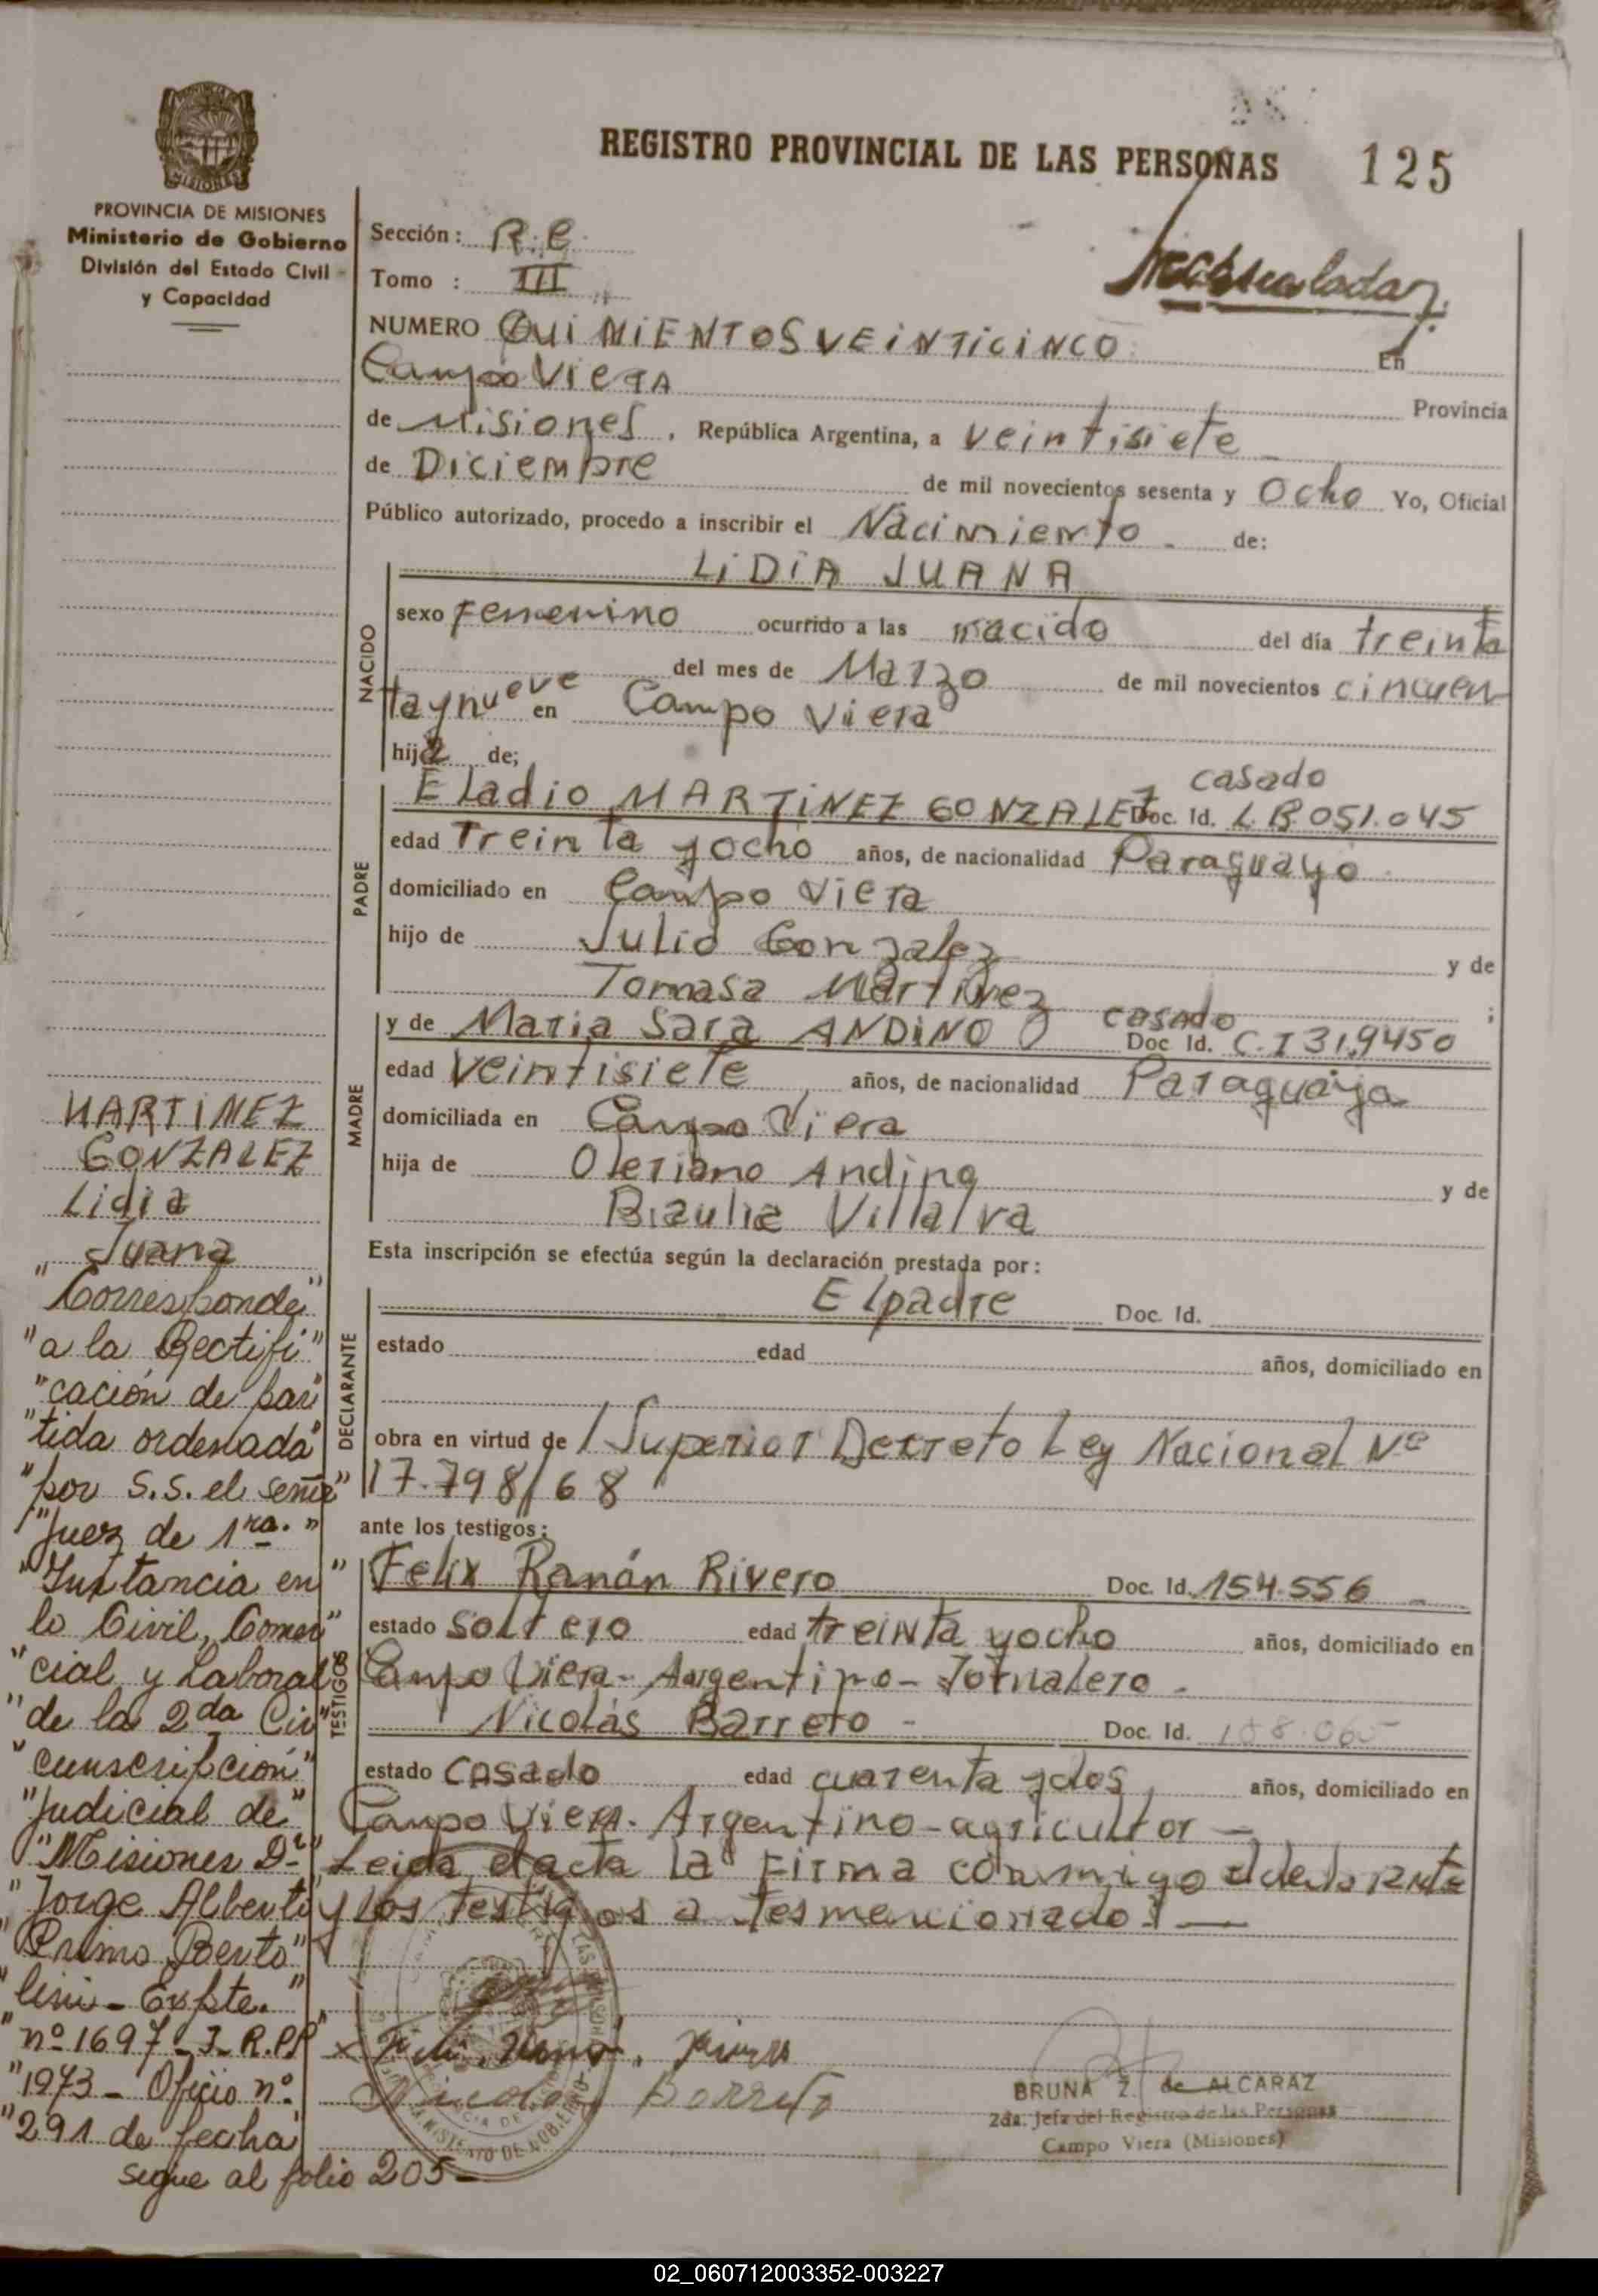 REGISTRO PROVINCIAL DE LAS PERSONAS 125
MISIONES
PROVINCIA DE MISIONES
Ministerio de Gobierno
División del Estado Civil
y Capacidad
Sección: R.C.
Tomo : III
NUMERO QUINIENTOS VEINTICINCO En
Campo Viera Provincia
de Misiones, República Argentina, a veintisiete
de Diciembre de mil novecientos sesenta y Ocho Yo, Oficial
Público autorizado, procedo a inscribir el Nacimiento de:
LIDIA JUANA
NACIDO
sexo Femenino ocurrido a las nacido del día treinta
del mes de Marzo de mil novecientos cincuen
ta y nueve en Campo Viera
hija de;
casado
PADRE
Eladio MARTINEZ GONZALEZ Doc. Id. L.B 051.045
edad Treinta y ocho años, de nacionalidad Paraguayo
domiciliado en Campo Viera
hijo de Julio Gonzalez y de
Tomasa Martinez ;
casado
MADRE
y de Maria Sara ANDINO Doc Id. C.I 319450
edad Veintisiete años, de nacionalidad Paraguaya
domiciliada en Campo Viera
hija de Oleriano Andino y de
Braulia Villalva
Esta inscripción se efectúa según la declaración prestada por:
DECLARANTE
El padre Doc. Id.
estado edad años, domiciliado en
obra en virtud de / Superior Decreto Ley Nacional Nº
17.798/68
ante los testigos:
TESTIGOS
Felix Ramón Rivero Doc. Id. 154.556
estado soltero edad treinta y ocho años, domiciliado en
Campo Viera - Argentino - Jornalero -
Nicolás Barreto - Doc. Id.
estado casado edad cuarenta y dos años, domiciliado en
Campo Viera. Argentino - agricultor -
Leida el acta la Firma conmigo
y los testigos antes mencionados
MARTINEZ
GONZALEZ
Lidia
Juana
"Corresponde"
"a la Rectifi"
"cación de par"
"tida ordenada"
"por S.S. el señor"
"Juez de 1ra."
"Instancia en"
lo Civil, Comer"
"cial y Laboral
"de la 2da Cir"
"cunscripción"
"Judicial de"
"Misiones Dr."
"Jorge Alberto
"Primo Berto"
"lini - Expte."
"nº 1697 - J - R.PP"
"1973 - Oficio nº
"291 de fecha"
segue al folio 205 -
Nicolas Barreto
BRUNA Z. de ALCARAZ
2da. Jefa del Registro de las Personas
Campo Viera (Misiones)
02_060712003352-003227